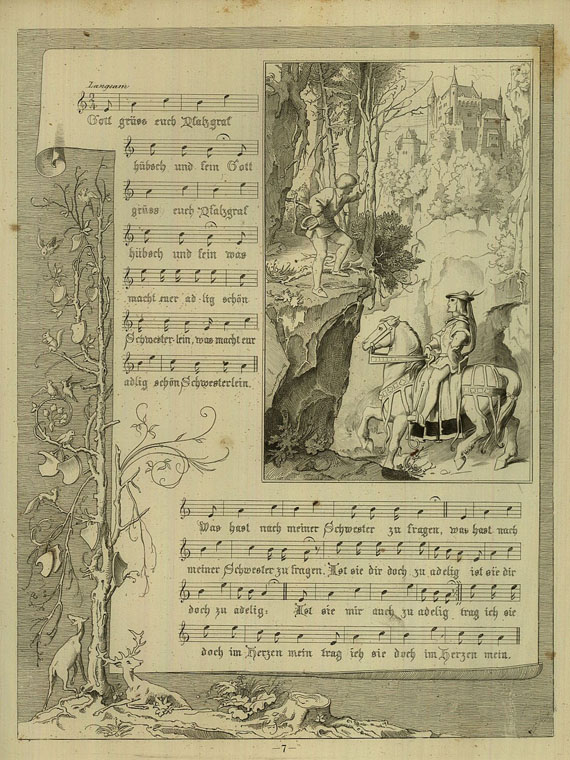 Langsam
Gott grüss euch Pfalzgraf
hübsch und fein Gott
grüss euch Pfalzgraf
hübsch und fein was
macht euer ad-lig schön
Schwester-lein, was macht eur
adlig schön Schwesterlein.
Was hast nach meiner Schwester zu fragen, was hast nach
meiner Schwester zu fragen. Ist sie dir doch zu adelig ist sie dir
doch zu adelig: Ist sie mir auch zu adelig trag ich sie
doch im Herzen mein trag ich sie doch im Herzen mein.
—7—